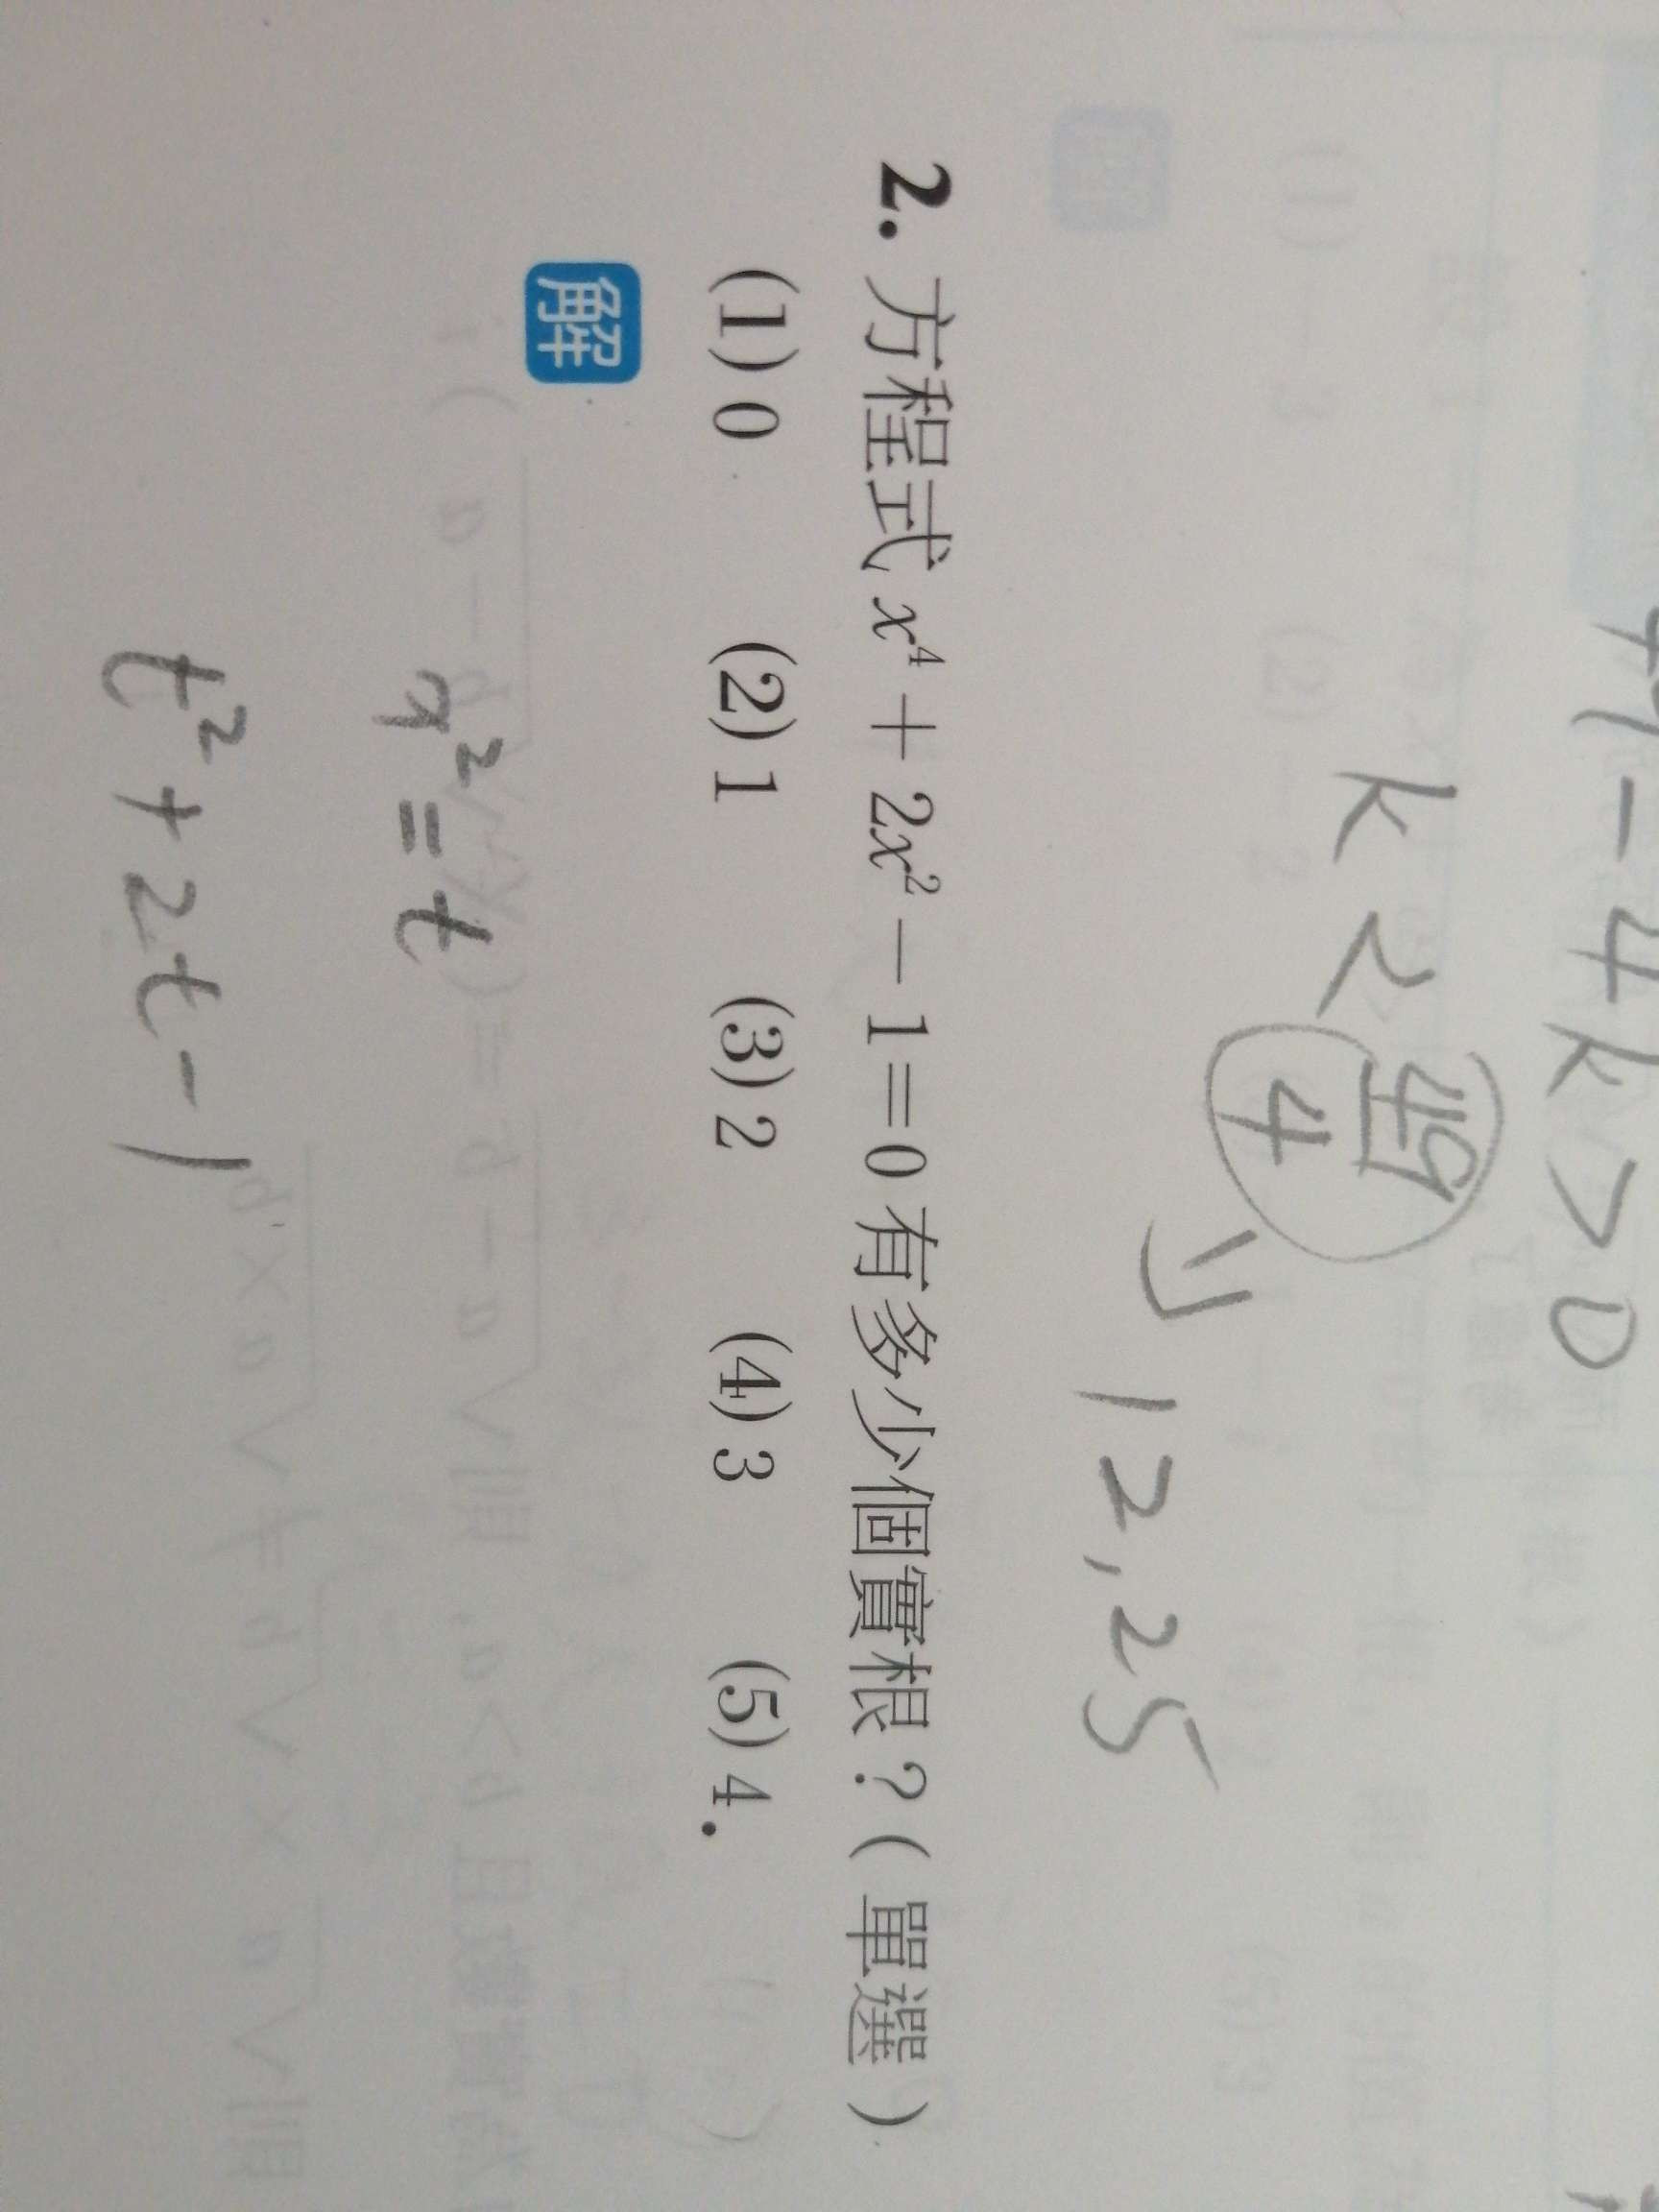 49-4k>0
k<49/4
12,25
2. 方程式 x⁴+2x²-1=0 有多少個實根？(單選)
(1) 0 (2) 1 (3) 2 (4) 3 (5) 4．
解
x²=t
t²+2t-1